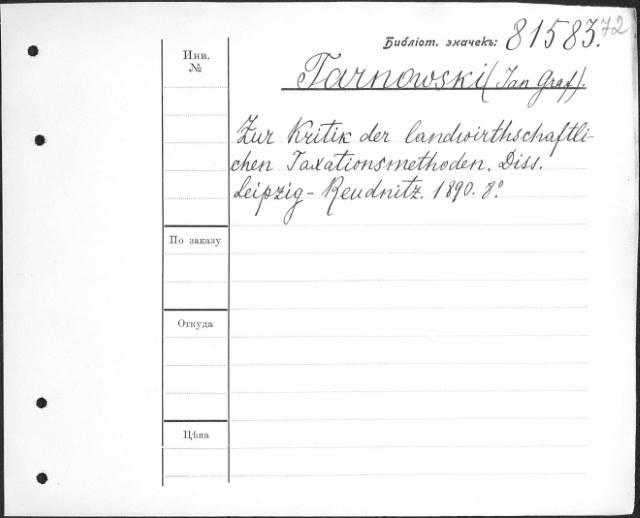 Библіот. значекъ: 81583.72
Инв.
№
Tarnowski (Jan Graf).
Zur Kritik der landwirthschaftli-
chen Taxationsmethoden. Diss.
Leipzig-Reudnitz. 1890. 8°.
По заказу
Откуда
Цѣна